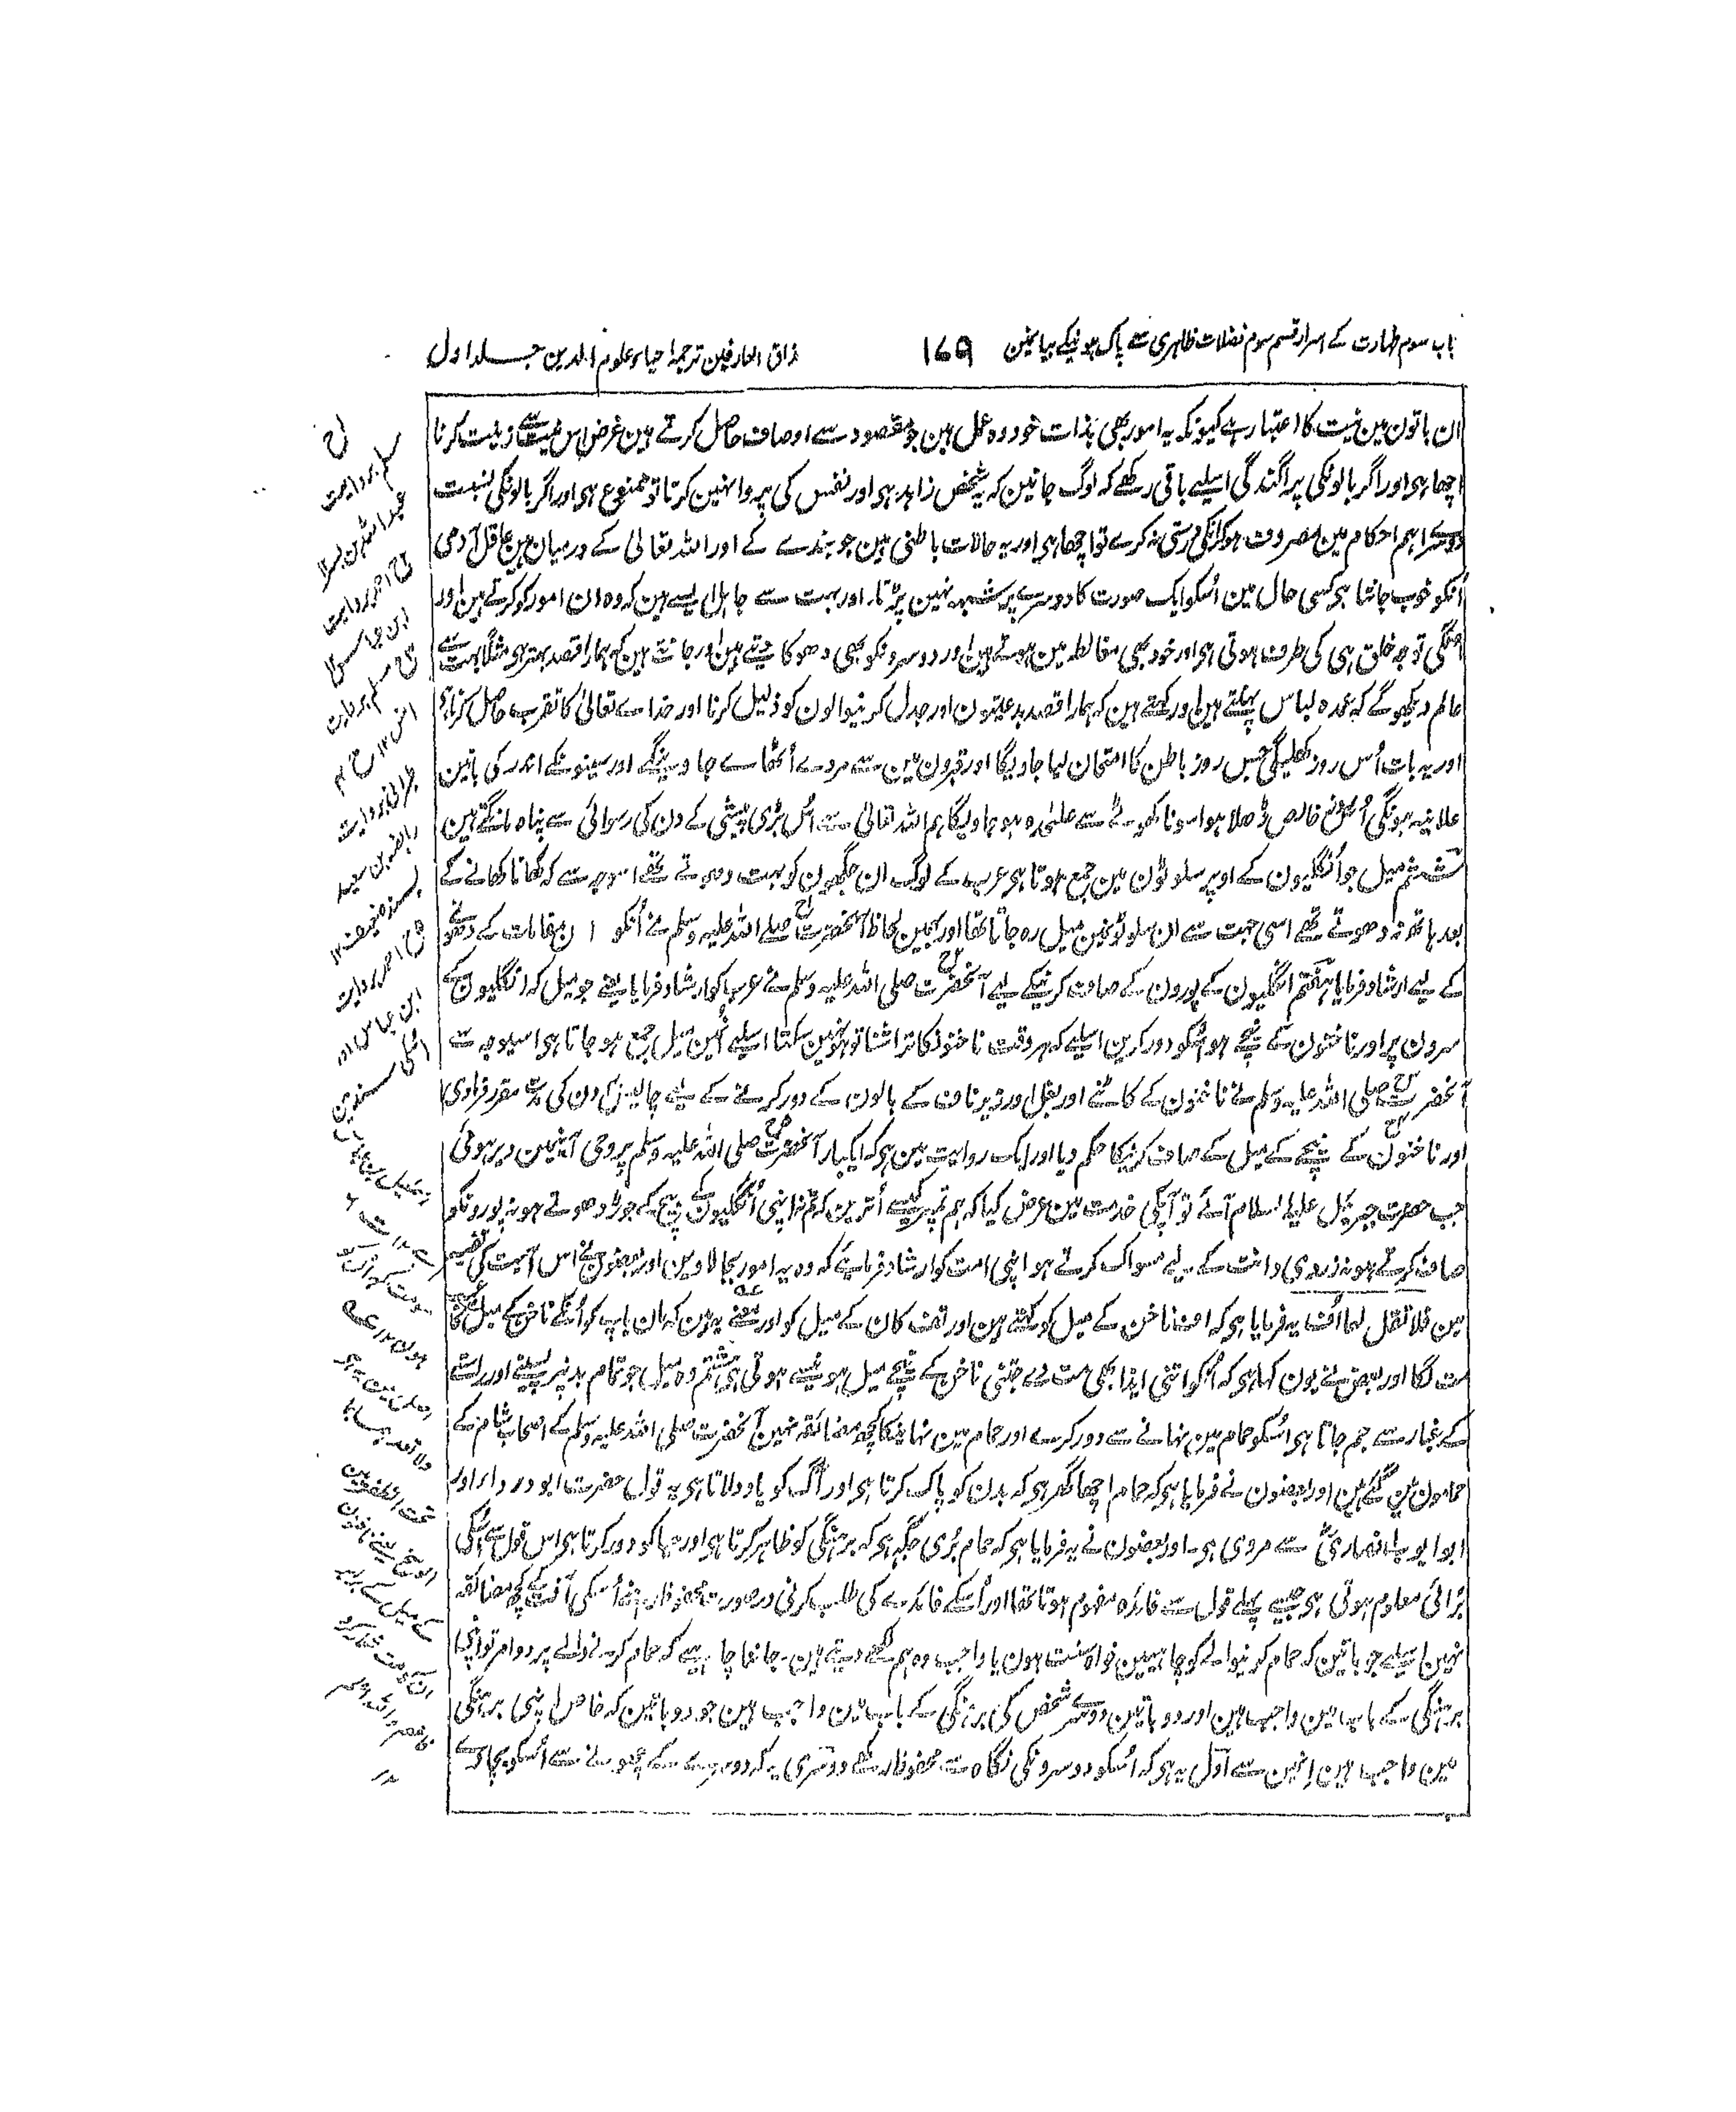 باب سوم طہارت کے اسرار قسم سوم فضلات ظاہری سے پاک ہونیکے بیانمین
۱۶۹
مذاق العارفین ترجمہ احیاء علوم الدین جلد اول
ان باتون مین نیت کا اعتبار ہے کیونکہ یہ امور بھی بذات خود وہ عمل ہین جو مقصود سے اوصاف حاصل کرتے ہین غرض اس نیت سے زینت کرنا
اچھا ہی اور اگر بالونکی پراگندگی اسلیے باقی رکھے کہ لوگ جانین کہ یہ شخص زاہد ہی اور نفس کی پروا نہین کرتا تو ممنوع ہی اور اگر بالونکی نسبت
دوسرے اہم احکام مین مصروف ہو کر انکی درستی نہ کرے تو اچھا ہی اور یہ حالات باطنی ہین جو بندے کے اور اللہ تعالیٰ کے درمیان ہین عاقل آدمی
اُنکو خوب جانتا ہی کسی حال مین اُسکو ایک صورت کا دوسرے پر شبہہ نہین پڑتا اور بہت سے جاہل ایسے ہین کہ وہ ان امور کو کرتے ہین اور
اُنکی توجہ خلق ہی کی طرف ہوتی ہی اور خود بھی مغالطہ مین ہوتے ہین اور دوسرونکو بھی دھوکا دیتے ہین اور جانتے ہین کہ ہمارا قصد بہتر ہی مثلاً بہت سے
عالم دیکھو گے کہ عمدہ لباس پہنتے ہین اور کہتے ہین کہ ہمارا قصد بدعتیون اور جدل کرنیوالون کو ذلیل کرنا اور خداے تعالیٰ کا تقرب حاصل کرنا ہی
اور یہ بات اُس روز کھلیگی جس روز باطن کا امتحان لیا جاویگا اور قبرون مین سے مردے اُٹھاے جاوینگے اور سینونکے اندر کی باتین
علانیہ ہونگی اُسوقت خالص ڈھلا ہوا سونا کھوٹے سے علیٰحدہ ہو جاویگا ہم اللہ تعالیٰ سے اُس بڑی پیشی کے دن کی رسوائی سے پناہ مانگتے ہین
ششم میل جو اُنگلیون کے اوپر سلوٹون مین جمع ہوتا ہی عرب کے لوگ ان جگہون کو بہت دھوتے نہ تھے اسوجہ سے کہ کھانا کھانے کے
بعد ہاتھ نہ دھوتے تھے اسی جہت سے ان سلوٹونمین میل رہ جاتا تھا اور بہمین لحاظ آنحضرت صلے اللہ علیہ وسلم نے اُنکو ان مقامات کے دھونے
کے لیے ارشاد فرمایا ہفتم اُنگلیون کے پورون کے صاف کرنیکے لیے آنحضرت صلی اللہ علیہ وسلم نے عرب کو ارشاد فرمایا یعنے جو میل کہ انگلیون کے
سرون پر اور ناخنون کے نیچے ہو اُسکو دور کرین اسلیے کہ ہر وقت ناخنونکا تراشنا تو ہو نہین سکتا اسلیے اُنمین میل جمع ہو جاتا ہی اسیوجہ سے
آنحضرت صلی اللہ علیہ وسلم نے ناخنون کے کاٹنے اور بغل اور زیر ناف کے بالون کے دور کرنے کے لیے چالیس دن کی مدت مقرر فرما دی
اور ناخنون کے نیچے کے میل کے صاف کرنیکا حکم دیا اور ایک روایت مین ہی کہ ایکبار آنحضرت صلی اللہ علیہ وسلم پر وحی آنیمین دیر ہوئی
جب حضرت جبرئیل علیہ السلام آئے تو آپکی خدمت مین عرض کیا کہ ہم تمپر کیسے اُترین کہ تم نہ اپنی اُنگلیون کے بیچ کے جوڑ دھوتے ہو نہ پورونکو
صاف کرتے ہو نہ زردی دانت کے لیے مسواک کرتے ہو اپنی امت کو ارشاد فرمایئے کہ وہ یہ امور بجا لاوین اور بعضون نے اس آیت کی تفسیر
مین فلا تقل لہما اُف یہ فرمایا ہی کہ اف ناخن کے میل کو کہتے ہین اور تف کان کے میل کو اور معنے یہ ہین کہ مان باپ کو اُنکے ناخن کے میل کا عیب
مت لگا اور بعض نے یون کہا ہی کہ اُنکو اتنی ایذا بھی مت دے جتنی ناخن کے نیچے میل ہونیسے ہوتی ہی ہشتم وہ میل جو تمام بدنپر پسینے اور راستے
کے غبار سے جم جاتا ہی اُسکو حمام مین نہانے سے دور کرے اور حمام مین نہانیکا کچھ مضائقہ نہین آنحضرت صلی اللہ علیہ وسلم کے اصحاب شام کے
حمامون مین گئے ہین اور بعضون نے فرمایا ہی کہ حمام اچھا گھر ہی کہ بدن کو پاک کرتا ہی اور آگ کو یاد دلاتا ہی یہ قول حضرت ابو درداء اور
ابو ایوب انصاری سے مروی ہی اور بعضون نے یہ فرمایا ہی کہ حمام بُری جگہ ہی کہ برہنگی کو ظاہر کرتا ہی اور حیا کو دور کرتا ہی اس قول سے اُسکی
بُرائی معلوم ہوتی ہی جیسے پہلے قول سے فائدہ مفہوم ہوتا تھا اور اُسکے فائدے کی طلب کرنی در صورت محفوظ رہنے اُسکی آفت کے کچھ مضائقہ
نہین اسلیے جو باتین کہ حمام کرنیوالے کو چاہیین خواہ سنت ہون یا واجب وہ ہم لکھے دیتے ہین۔ جاننا چاہیے کہ حمام کرنے والے پر دو امر تو اپنی
برہنگی کے باب مین واجب ہین اور دو باتین دوسرے شخص کی برہنگی کے باب مین واجب ہین جو دو باتین کہ خاص اپنی برہنگی
مین واجب ہین انمین سے اول یہ ہی کہ اُسکو دوسرونکی نگاہ سے محفوظ رکھے دوسری یہ کہ دوسرے کے چھونے سے اُسکو بچاوے
مسلم بروایت
احمد بروایت
ابن عباس
طبرانی بروایت
بسند ضعیف ۱۲
احمد بروایت
ابن عباس